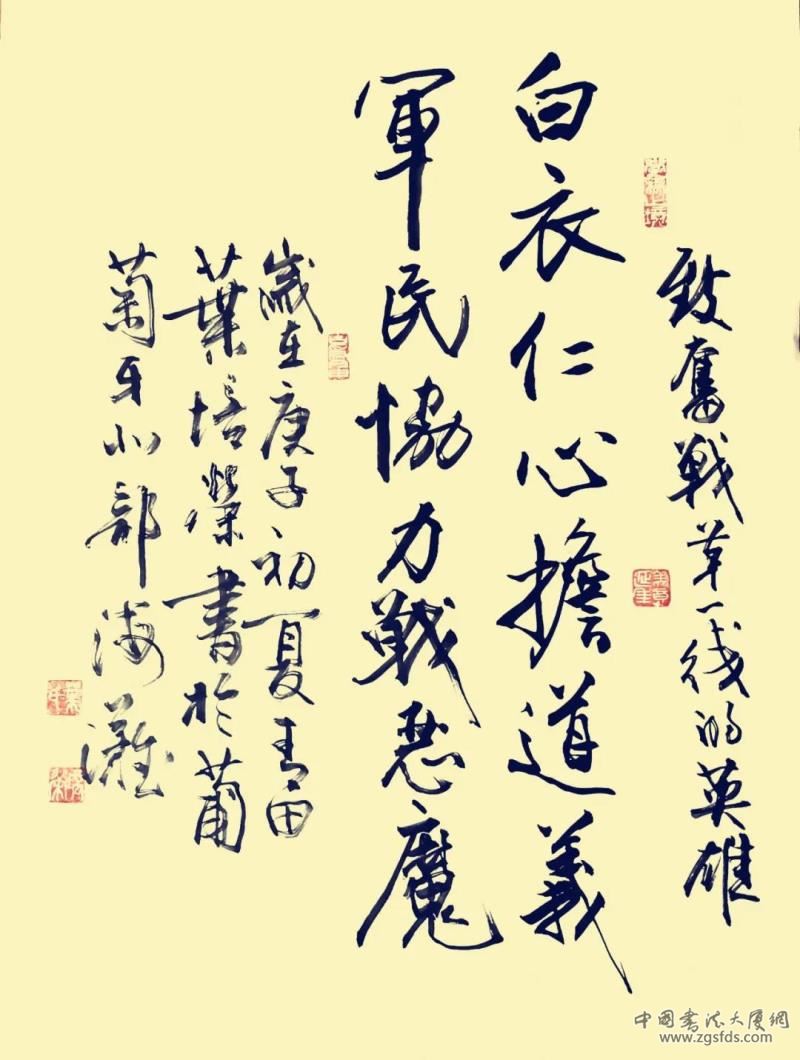 致奮戰革一线的英雄
白衣仁心擔道義
軍民協力戰惡魔
歲在庚子初夏青田
葉培榮書於葡
萄牙北部海灘
中國書法大廈網
www.zgsfds.com